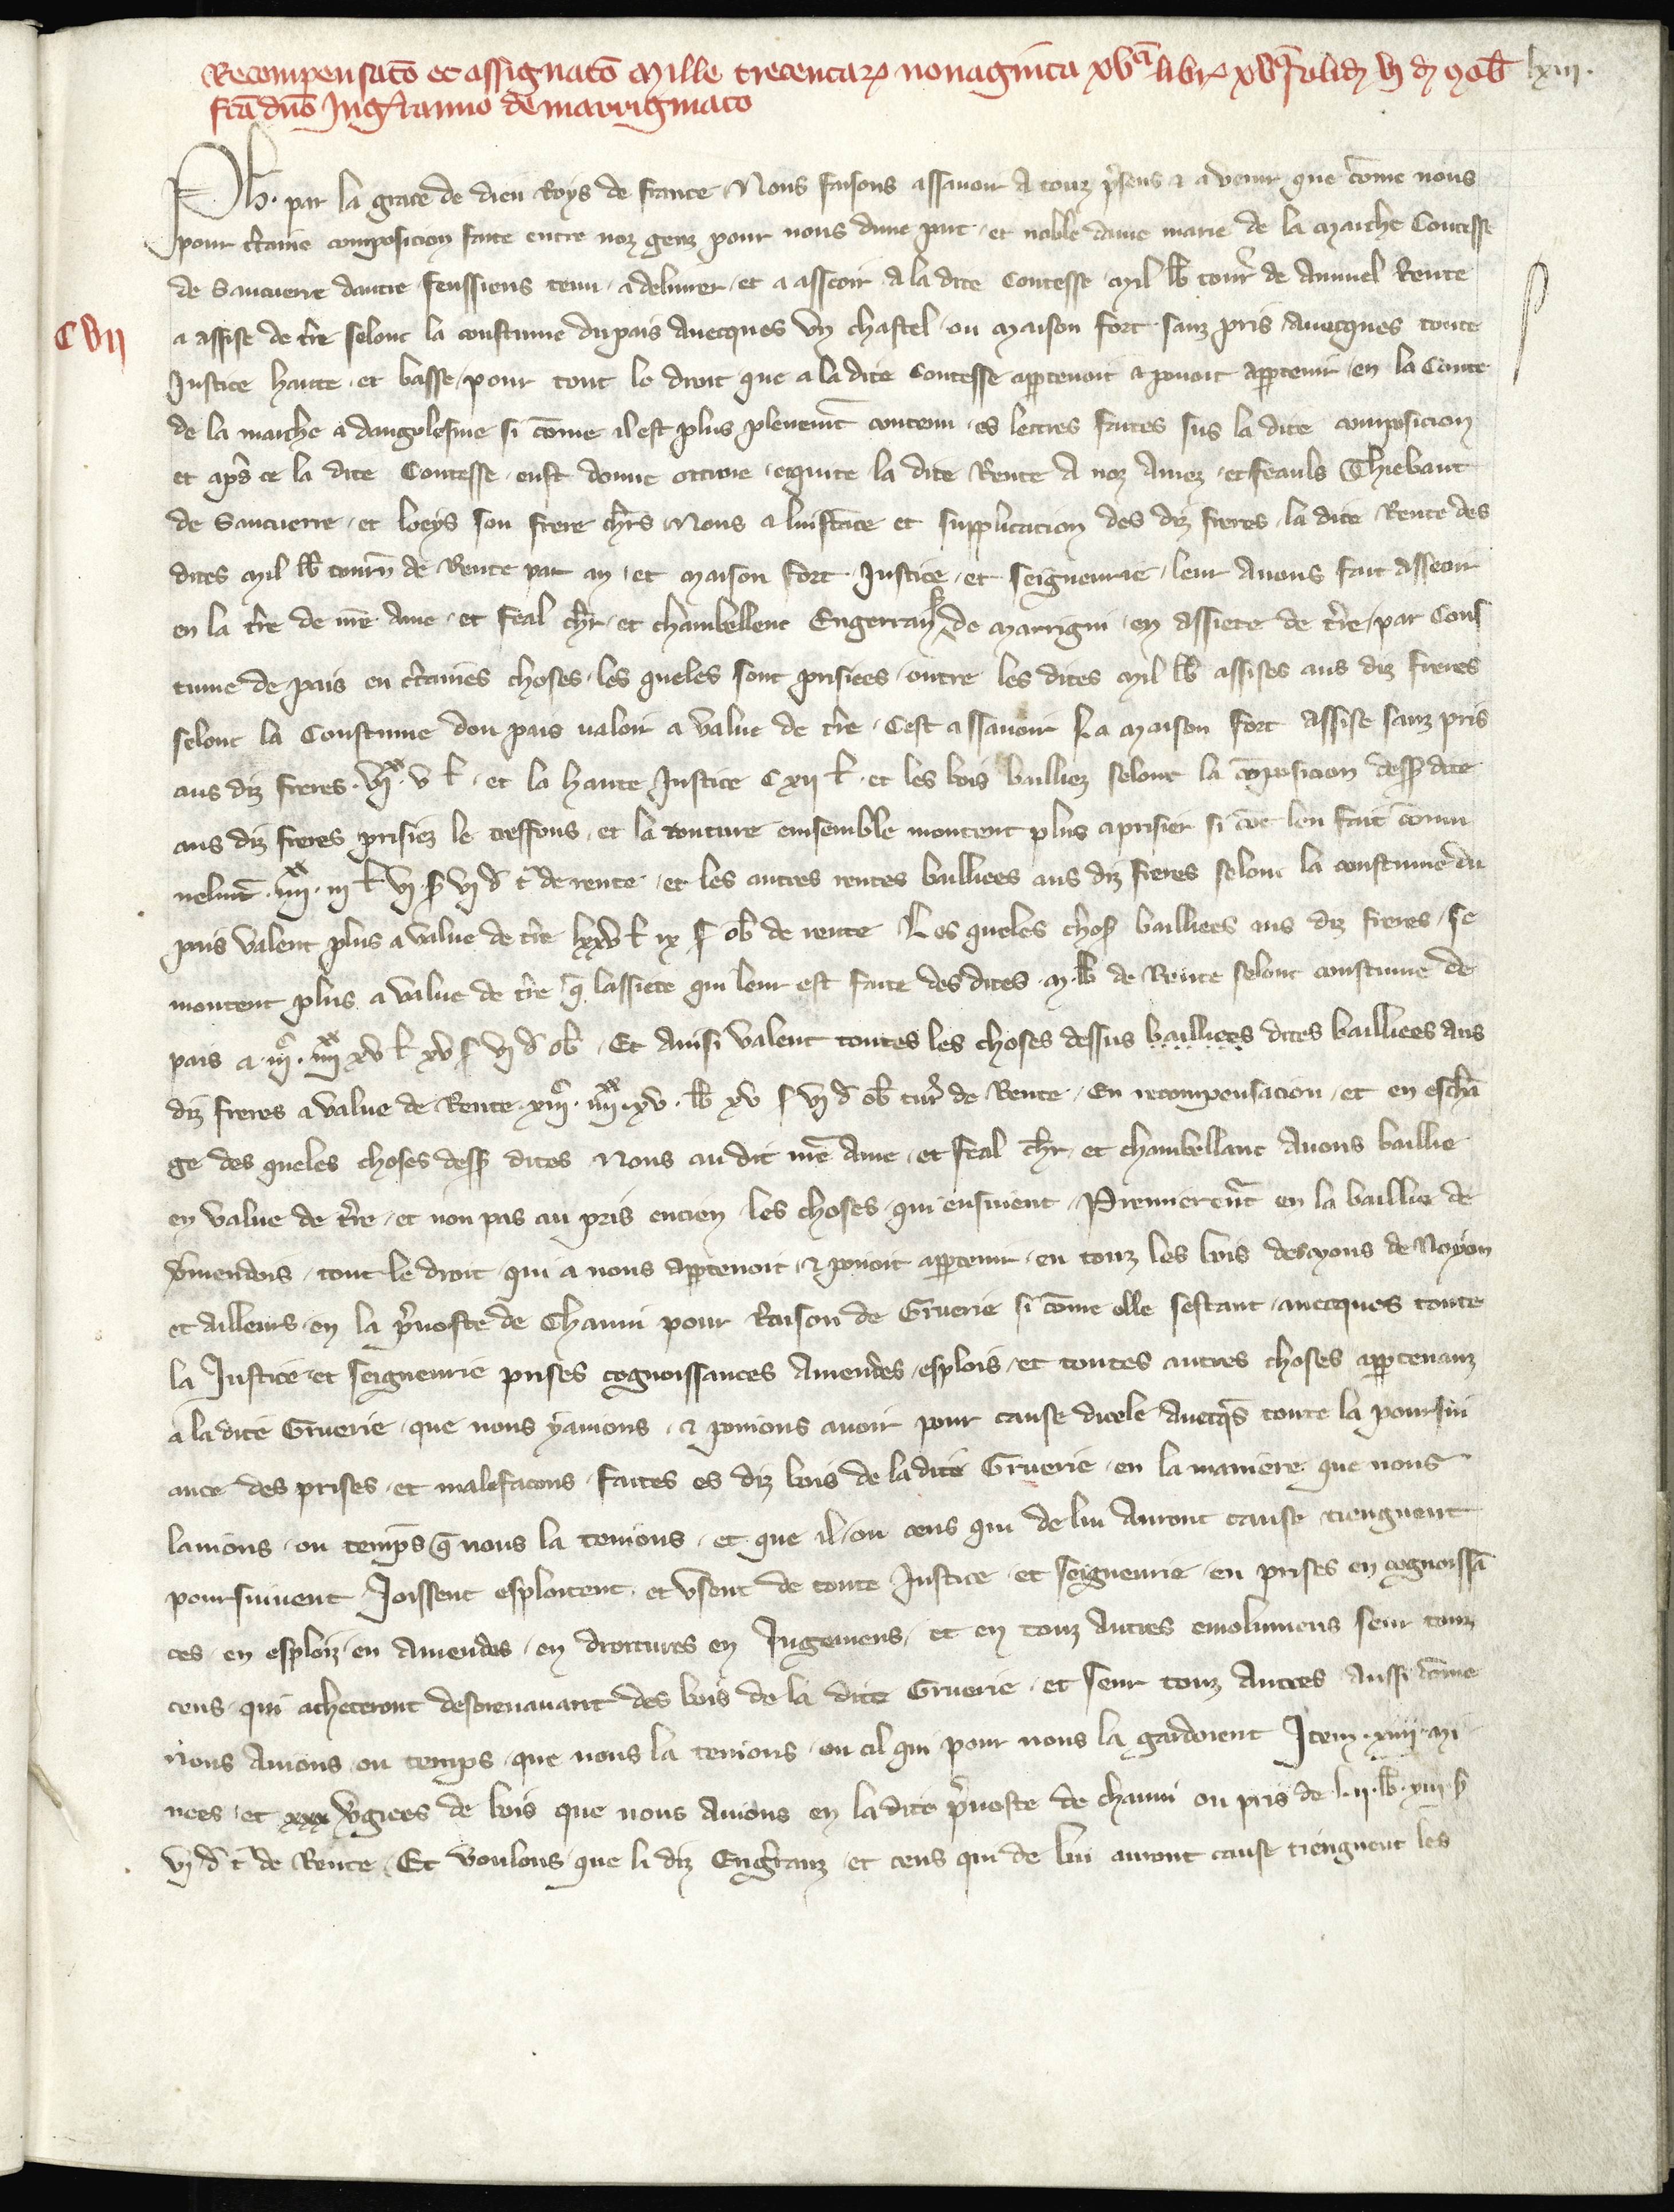 Recompensatō et assignatō Mille trecentaꝝ nonaginta xvᵃ libꝝ xvᶜⁱ solidꝝ vj d̃ 7 ob̄ lxiii.
fc̄a dn̄o Ingᵉranno de marrigniaco
Ph̄. par la grace de dieu Roys de france Nous faisons assauoir a touz p̄sens et a venir que cōme nous
pour c̄taine composicion faite entre noz genz pour nous dune part et noble dame marie de la Marche Contesse
de Sancuerre dautre feussiens tenu a deliurer et a asseoir a la dite Contesse Mil lb̄ tour̄ de Annuel Rente
CVII
a assise de t̄re selonc la coustume du pais auecques vn chastel ou Maison fort sanz pris auecques toute
Justice haute et basse pour tout lo droit que a la dite Contesse appartenoit et pouoit appartenir en la Conte
de la marche et dangolesme si cōme il est plus plenemēt contenu es lettres faites sus la dite composicion
et ap̄s ce la dite Contesse eust donne ottroie et quite la dite Rente a noz Amez et feauls Thiebaut
de Sancuerre et loeys son frere ch̄rs Nous a linstāce et supplicacion des diz freres la dite Rente des
dites Mil lb̄ tourn̄ de Rente par an et Maison fort Justice et seigneurie leur auons fait asseoir
en la t̄re de nr̄e Ame et feal ch̄r et chambellenc Engerran de Marrigni en assiete de t̄re par Cous
tume de pais en c̄taines choses les queles sont prisiees outre les dites Mil lb̄ assises aus diz freres
selonc la Coustume dou pais ualoir a value de t̄re Cest assauoir La Maison fort assise sanz pris
aus diz freres .vjˣˣ. v ł. et la haute Justice C xii ł. et les bois bailliez selonc la cōposicion dess̄ dite
aus diz freres prisiez le tresfons et la tonture ensemble montent plus a prisier si cōe len fait cōmu
nelmēt .iiiiˣˣ. iij ł vj s̄ vj d̄ t̄ de rente et les autres rentes bailliees aus diz freres selonc la coustume du
pais valent plus a value de t̄re lxxv ł ix s̄ ob̄ de rente Les queles chos̄ bailliees aus diz freres se
montent plus a value de t̄re q̄ lassiete qui leur est faite des dites .M. lb̄ de Rente selonc coustume de
pais a .iijᶜ. iiijˣˣ xv ł xv s̄ vj d̄ ob̄ Et Ainsi valent toutes les choses dessus bailliees dites bailliees aus
diz freres a value de Rente .xiijᶜ. iiiiˣˣ. xv. lb̄ xv s̄ vj d̄ ob̄ tur̄ de Rente En recompensacion et en eschā
ge des queles choses dess̄ dites Nous au dit nr̄e Ame et feal ch̄r et chambellanc Auons baillie
en value de t̄re et non pas au pris encien les choses qui ensiuent Premieremēt en la baillie de
v̄mendois tout le droit qui a nous appartenoit et pouoit appartenir en touz les bois des Mons de Noyon
et ailleurs en la p̄uoste de Chauni pour Raison de Gruerie si cōme elle sestant auecques toute
la Justice et seigneurie prises cognoissances Amendes esplois et toutes autres choses appartenanz
a la dite Gruerie que nous y auions et pouions auoir pour cause dicele auecq̄s toute la poursui
ance des prises et malefacons faites es diz bois de la dite Gruerie en la maniere que nous
lauions ou temps q̄ nous la tenions et que il ou ceus qui de lui Auront cause tiengnent
poursuiuent Joissent esploitent et vsent de toute Justice et seigneurie en prises en cognoissā
ces en esploiz en Amendes en droitures en Jugemens et en touz Autres emolumens seur touz
ceus qui acheteront desorenauant des bois de la dite Gruerie et seur touz Autres Aussi cōme
nous Auions ou temps que nous la tenions ou cil qui pour nous la gardoient Item .xiiii. Mi
nees et xxx v̄giees de bois que nous Auions en la dite p̄uoste de chauni ou pris de lii. lb̄. xiii. s̄
vj d̄ t̄ de Rente Et voulons que li diz Engᵉranz et ceus qui de lui auront cause tiengnent les